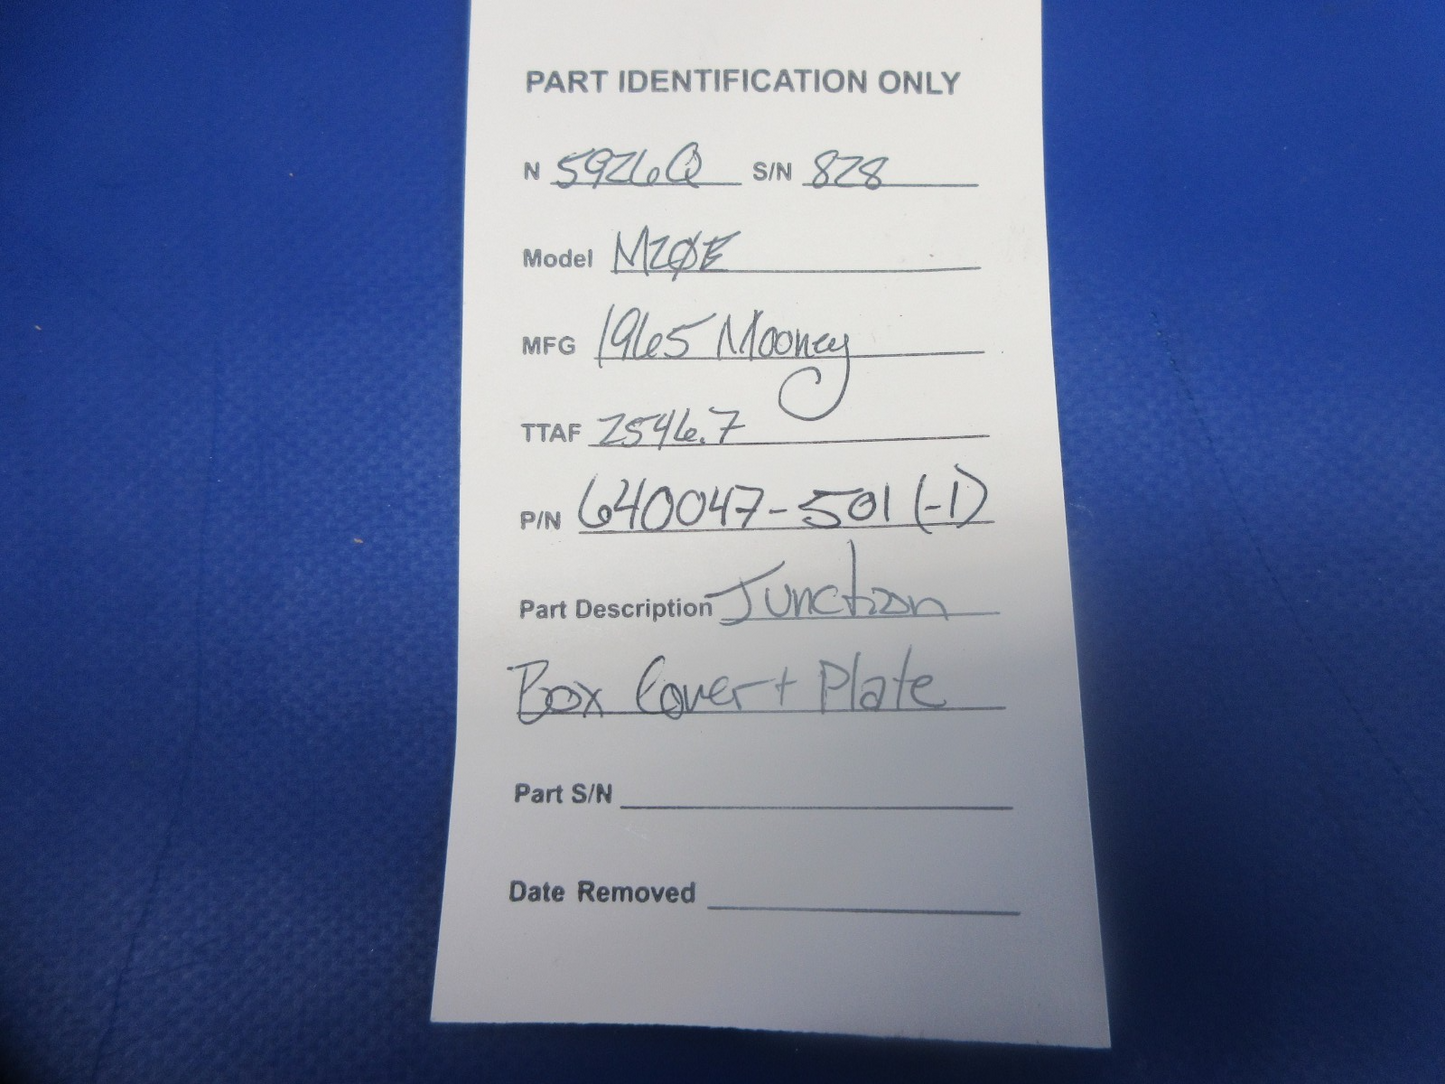 PART IDENTIFICATION ONLY
N 5926Q S/N 828
Model M20E
MFG 1965 Mooney
TTAF 2546.7
P/N 640047-501 (-1)
Part Description Junction
Box Cover + Plate
Part S/N
Date Removed